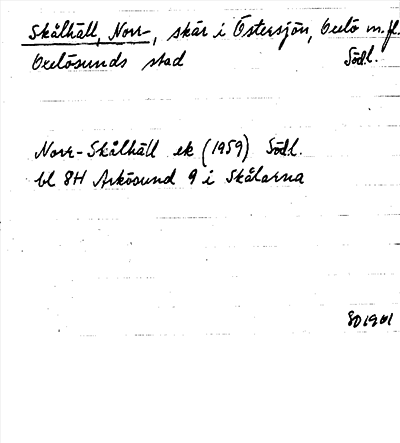 Skålhäll, Norr-, skär i Östersjön, Oxelö m.fl.
Oxelösunds stad Södl.
Norr-Skålhäll ek (1959) Södl.
bl 8H Arkösund 9 i Skålarna
801901